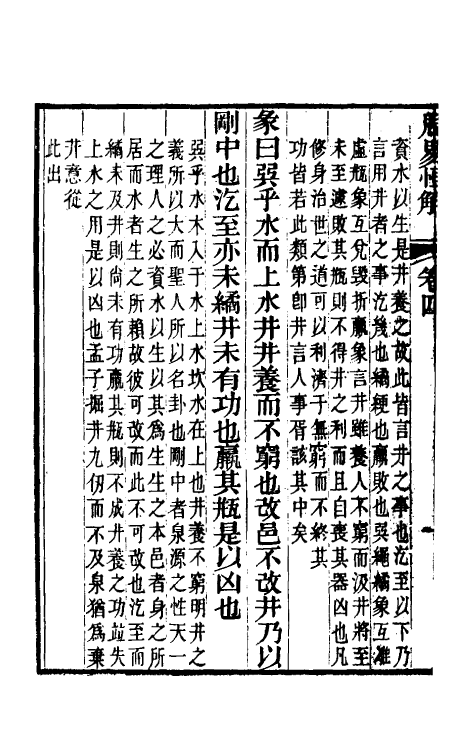 周易恒解 卷四
資水以生是井養之故此皆言井之事也汔至以下乃
言用井者之事汔幾也繘綆也羸敗也巽繩繘象互離
虛瓶象互兌毀折羸象言井雖養人不窮而汲井將至
未至遽敗其瓶則不得井之利而且自喪其器凶也凡
修身治世之道可以利濟于無窮而不終其
功皆若此類第卽井言人事胥該其中矣
彖曰巽乎水而上水井井養而不窮也改邑不改井乃以
剛中也汔至亦未繘井未有功也羸其瓶是以凶也
巽乎水木入于水上水坎水在上也井養不窮明井之
義所以大而聖人所以名卦也剛中者泉源之性天一
之理人之必資水以生以其爲生生之本邑者身之所
居而水者生之所賴故彼可改而此不可改也汔至而
繘未及井則尚未有功羸其瓶則不成井養之功竝失
上水之用是以凶也孟子掘井九仞而不及泉猶爲棄
井意從
此出